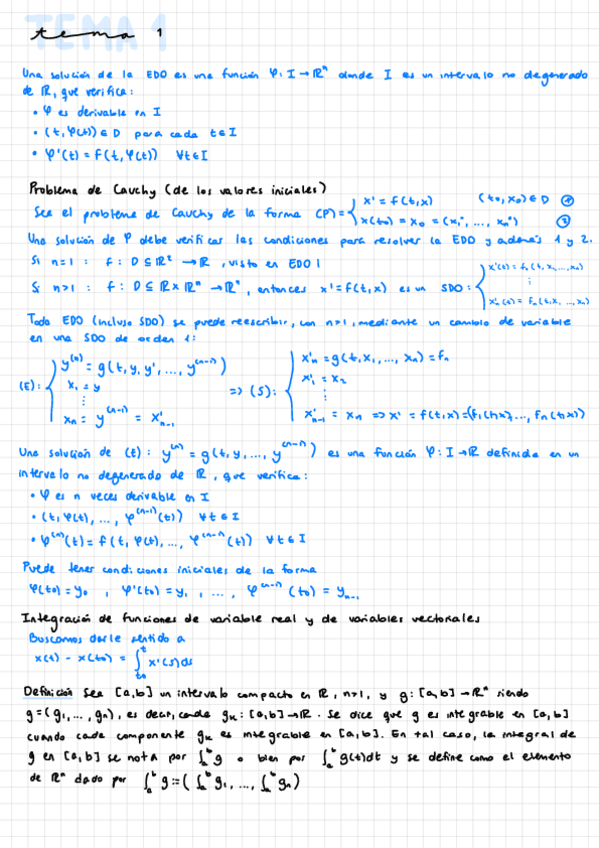 TEMA 1
tema 1
Una solución de la EDO es una función φ: I → ℝⁿ donde I es un intervalo no degenerado
de ℝ, que verifica:
• φ es derivable en I
• (t, φ(t)) ∈ D para cada t ∈ I
• φ'(t) = f(t, φ(t)) ∀t ∈ I
Problema de Cauchy (de los valores iniciales)
Sea el problema de Cauchy de la forma (P) = { x' = f(t,x) (t₀, x₀) ∈ D ①
x(t₀) = x₀ = (x₁°, ..., xₙ°) ②
Una solución de P debe verificar las condiciones para resolver la EDO y además 1 y 2.
Si n=1 : f: D ⊆ ℝ² → ℝ, visto en EDO I
Si n>1 : f: D ⊆ ℝ x ℝⁿ → ℝⁿ, entonces x' = f(t,x) es un SDO: { x₁'(t) = f₁(t, x₁, ..., xₙ)
⋮
xₙ'(t) = fₙ(t, x₁, ..., xₙ)
Toda EDO (incluso SDO) se puede reescribir, con n>1, mediante un cambio de variable
en una SDO de orden 1:
(E): { y⁽ⁿ⁾ = g(t, y, y', ..., y⁽ⁿ⁻¹⁾)
x₁ = y
⋮
xₙ = y⁽ⁿ⁻¹⁾ = x'ₙ₋₁
=> (S): { x'ₙ = g(t, x₁, ..., xₙ) = fₙ
x'₁ = x₂
⋮
x'ₙ₋₁ = xₙ => x' = f(t,x) = (f₁(t,x), ..., fₙ(t,x))
Una solución de (E): y⁽ⁿ⁾ = g(t, y, ..., y⁽ⁿ⁻¹⁾) es una función φ: I → ℝ definida en un
intervalo no degenerado de ℝ, que verifica:
• φ es n veces derivable en I
• (t, φ(t), ..., φ⁽ⁿ⁻¹⁾(t)) ∀t ∈ I
• φ⁽ⁿ⁾(t) = f(t, φ(t), ..., φ⁽ⁿ⁻¹⁾(t)) ∀t ∈ I
Puede tener condiciones iniciales de la forma
φ(t₀) = y₀ , φ'(t₀) = y₁ , ... , φ⁽ⁿ⁻¹⁾(t₀) = yₙ₋₁
Integración de funciones de variable real y de variables vectorales
Buscamos darle sentido a
x(t) - x(t₀) = ∫ₜ₀ᵗ x'(s)ds
Definición Sea [a,b] un intervalo compacto en ℝ, n>1, y g: [a,b] → ℝⁿ siendo
g = (g₁, ..., gₙ), es decir, cada gₖ: [a,b] → ℝ. Se dice que g es integrable en [a,b]
cuando cada componente gₖ es integrable en [a,b]. En tal caso, la integral de
g en [a,b] se nota por ∫ₐᵇ g o bien por ∫ₐᵇ g(t)dt y se define como el elemento
de ℝⁿ dado por ∫ₐᵇ g := (∫ₐᵇ g₁, ..., ∫ₐᵇ gₙ)